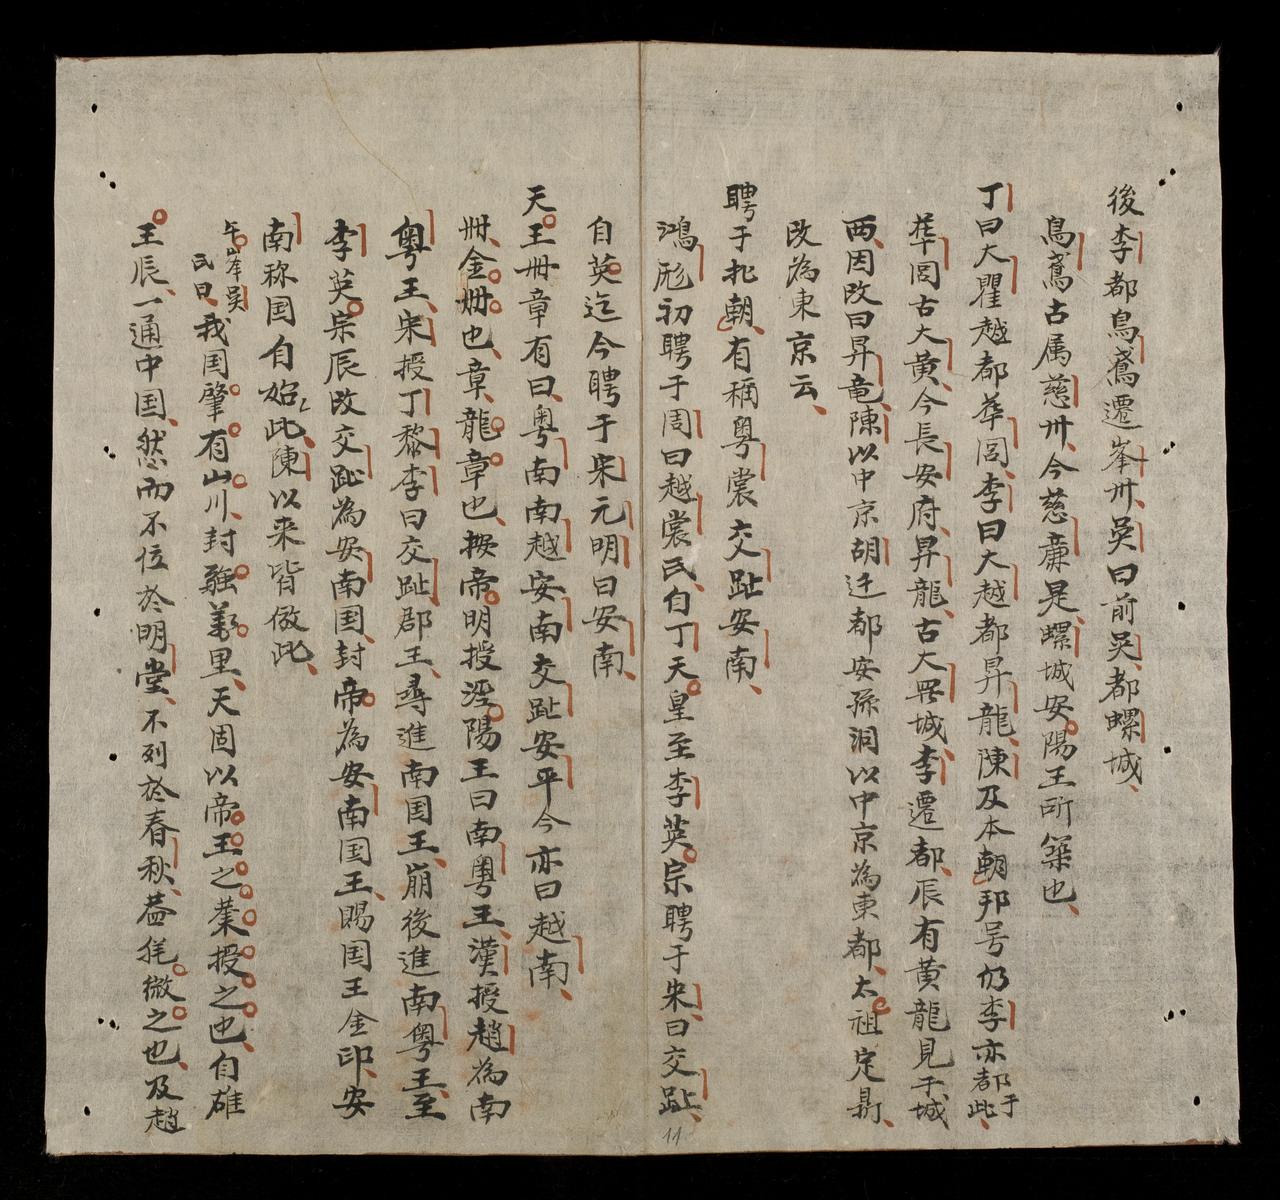 後李都鳥鳶遷峯州吳曰前吳都螺城
鳥鳶古属慈州今慈亷是螺城安陽王所築也
丁曰大瞿越都華閭李曰大越都昇龍陳及本朝邦号仍李亦都于此
華閭古大黄今長安府昇龍古大罗城李遷都辰有黄龍見于城
西因改曰昇竜陳以中京胡迁都安孫洞以中京為東都太祖定鼎
改為東京云
聘于北朝有稱粤裳交趾安南
鴻厖初聘于周曰越裳氏自丁天皇至李英宗聘于宋曰交趾
自英迄今聘于宋元明曰安南
天王冊章有曰粤南南越安南交趾安平今亦曰越南
冊金冊也章龍章也按帝明授涇陽王曰南粤王漢授趙為南
粤王宋授丁黎李曰交趾郡王尋進南国王崩後進南粤王至
李英宗辰改交趾為安南国封帝為安南国王賜国王金印安
南称国自始此陳以来皆倣此
午峯吴氏曰我国肇有山川封疆萬里天固以帝王之業授之也自雄
王辰一通中国然而不位於明堂不列於春秋盖羌微之也及趙
11